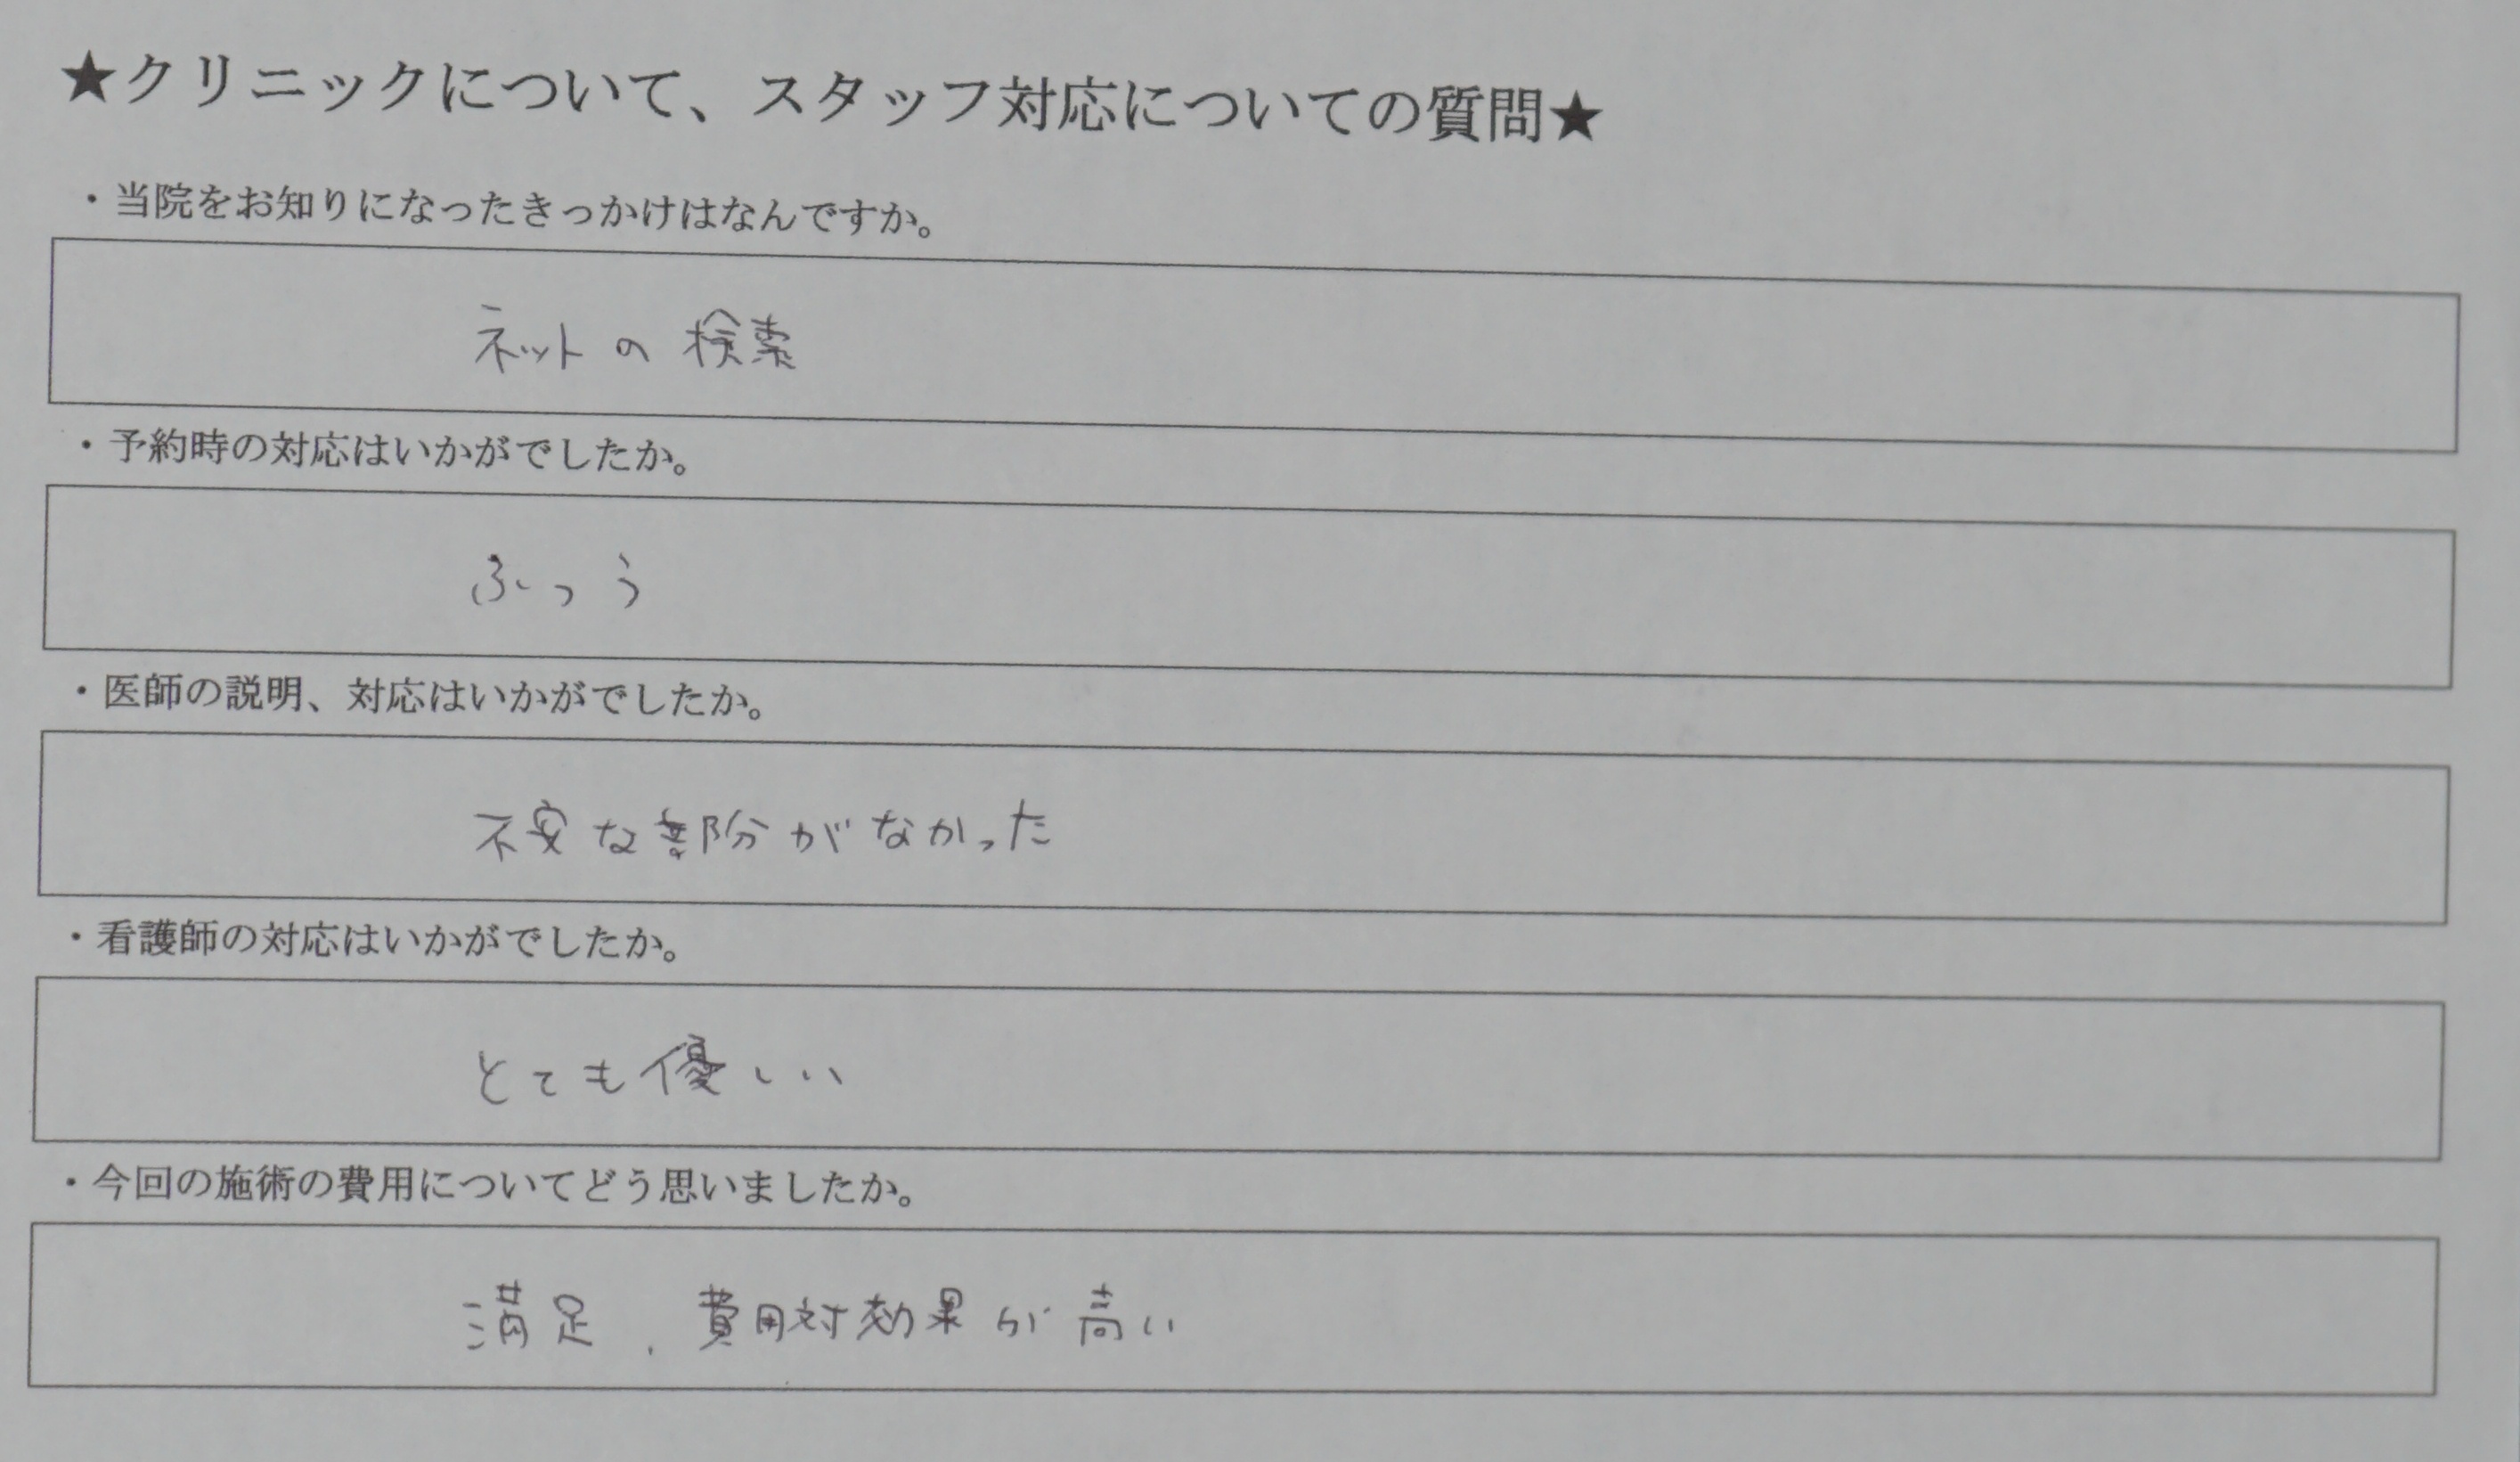 ★クリニックについて、スタッフ対応についての質問★
・当院をお知りになったきっかけはなんですか。
ネットの検索
・予約時の対応はいかがでしたか。
ふつう
・医師の説明、対応はいかがでしたか。
不安な部分がなかった
・看護師の対応はいかがでしたか。
とても優しい
・今回の施術の費用についてどう思いましたか。
満足、費用対効果が高い